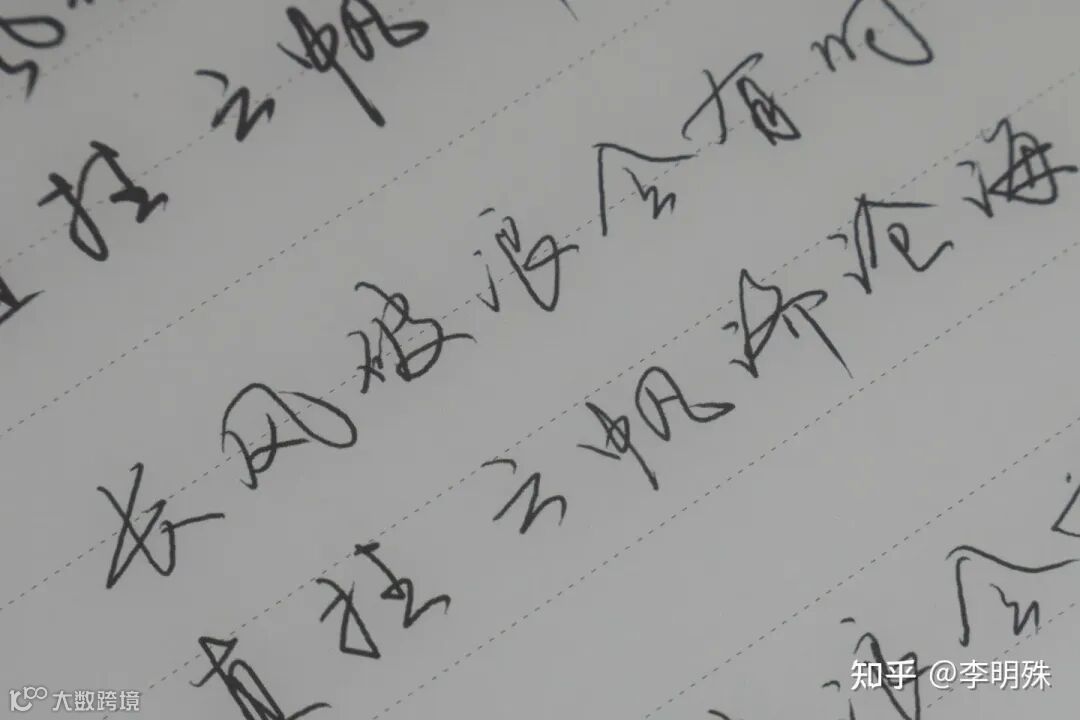 挂云帆
长风破浪会有时
直挂云帆济沧海
浪会
知乎 @李明殊
大数跨境